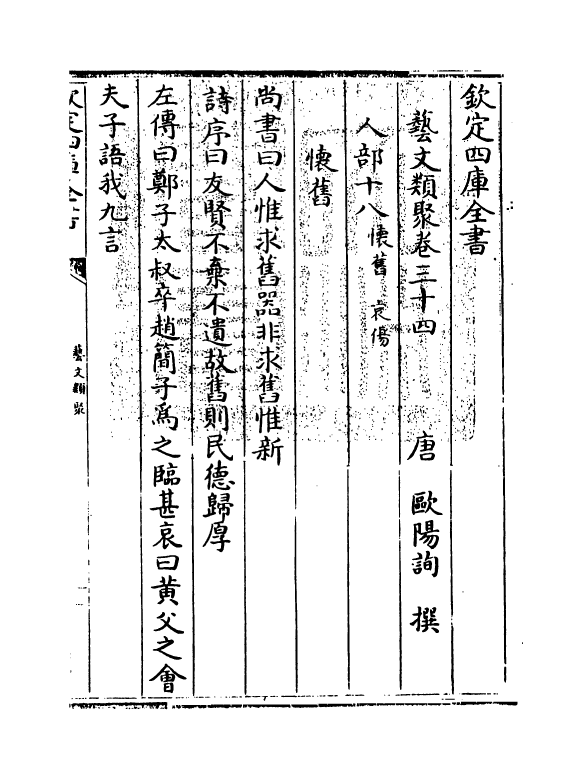 欽定四庫全書
藝文類聚卷三十四
唐 歐陽詢 撰
人部十八懷舊 哀傷
懷舊
尚書曰人惟求舊器非求舊惟新
詩序曰友賢不棄不遺故舊則民德歸厚
左傳曰鄭子太叔卒趙簡子為之臨甚哀曰黄父之會
夫子語我九言
藝文類聚